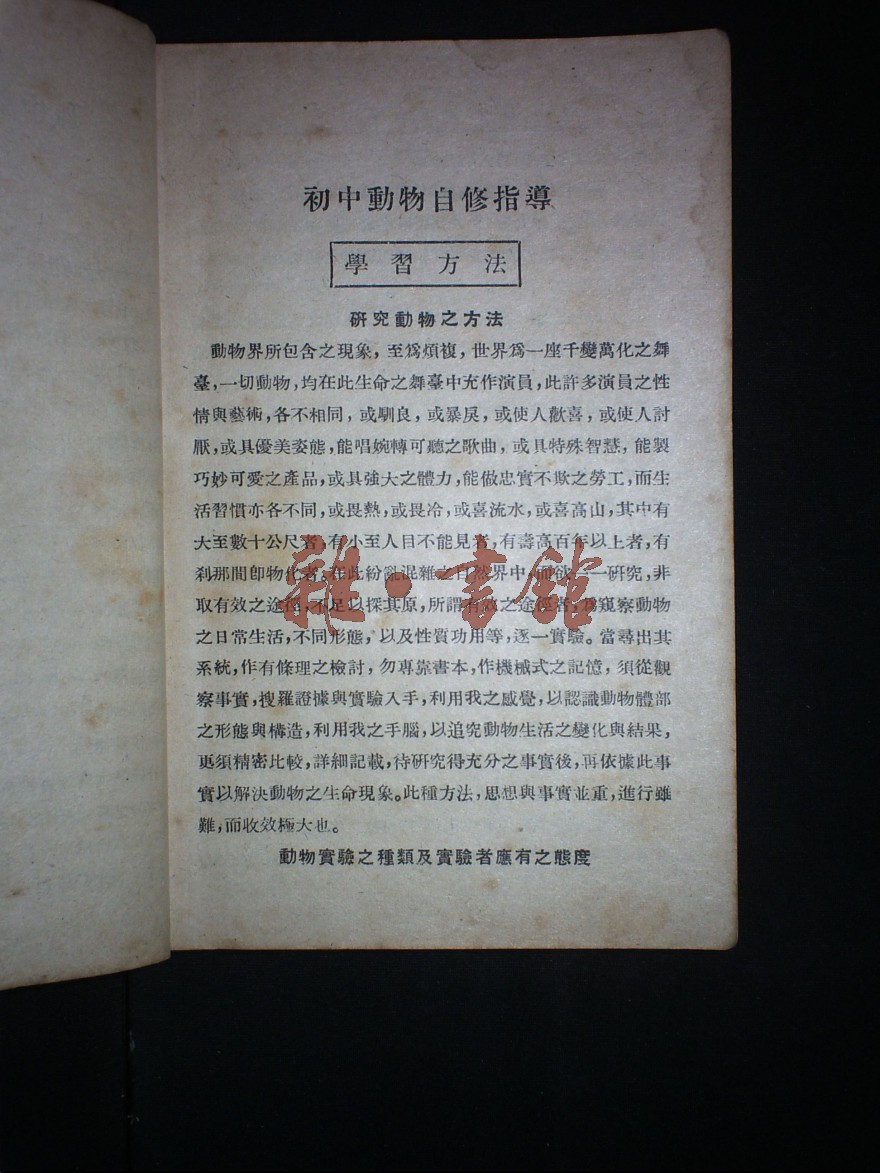 初中動物自修指導
學習方法
研究動物之方法
動物界所包含之現象，至爲煩複，世界爲一座千變萬化之舞
臺，一切動物，均在此生命之舞臺中充作演員，此許多演員之性
情與藝術，各不相同，或馴良，或暴戾，或使人歡喜，或使人討
厭，或具優美姿態，能唱婉轉可聽之歌曲，或具特殊智慧，能製
巧妙可愛之產品，或具強大之體力，能做忠實不欺之勞工，而生
活習慣亦各不同，或畏熱，或畏冷，或喜流水，或喜高山，其中有
大至數十公尺者，有小至人目不能見者，有壽高百年以上者，有
刹那間卽物化者。在此紛亂混雜之自然界中，而欲一一研究，非
取有效之途徑，不足以探其原，所謂有效之途徑者，爲窺察動物
之日常生活，不同形態，以及性質功用等，逐一實驗。當尋出其
系統，作有條理之檢討，勿專靠書本，作機械式之記憶，須從觀
察事實，搜羅證據與實驗入手，利用我之感覺，以認識動物體部
之形態與構造，利用我之手腦，以追究動物生活之變化與結果，
更須精密比較，詳細記載，待研究得充分之事實後，再依據此事
實以解決動物之生命現象。此種方法，思想與事實並重，進行雖
難，而收效極大也。
動物實驗之種類及實驗者應有之態度
雜·書館